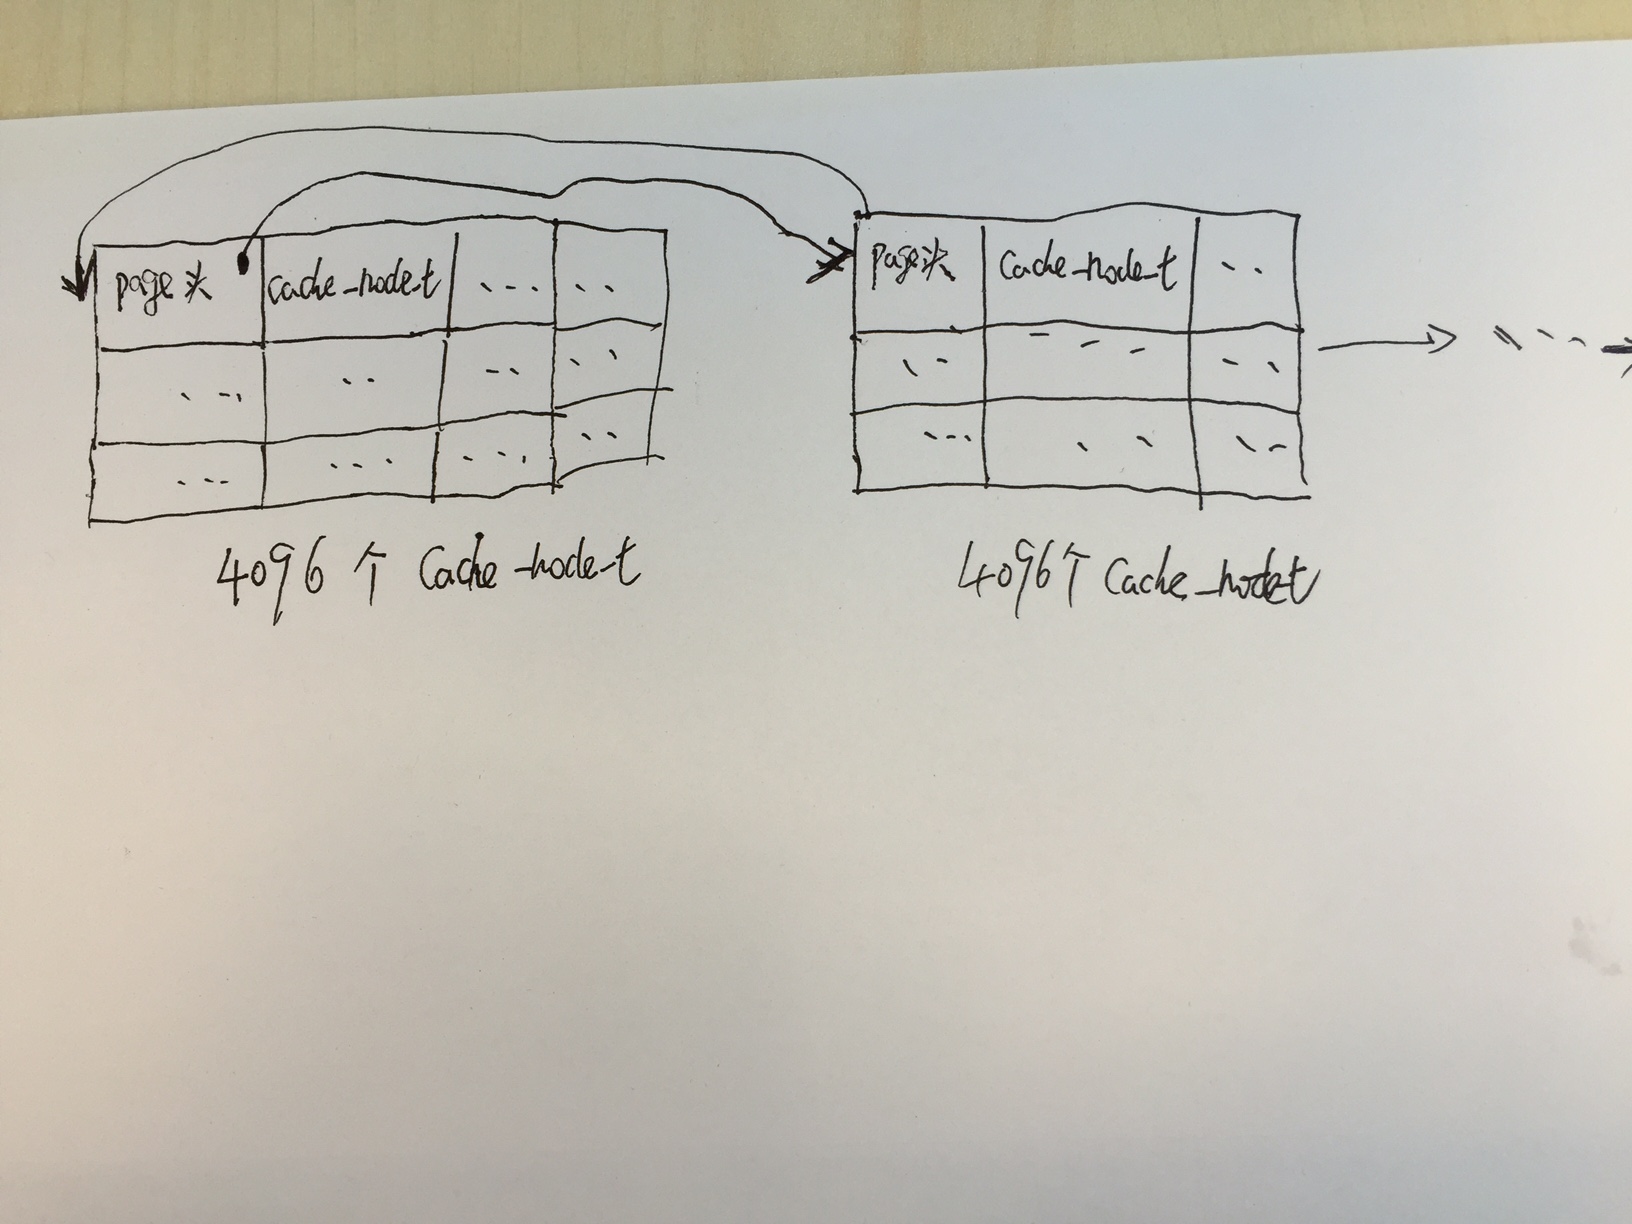 page头
cache_node_t
4096个 Cache_node_t
page头
Cache_node_t
4096个 Cache_node_t